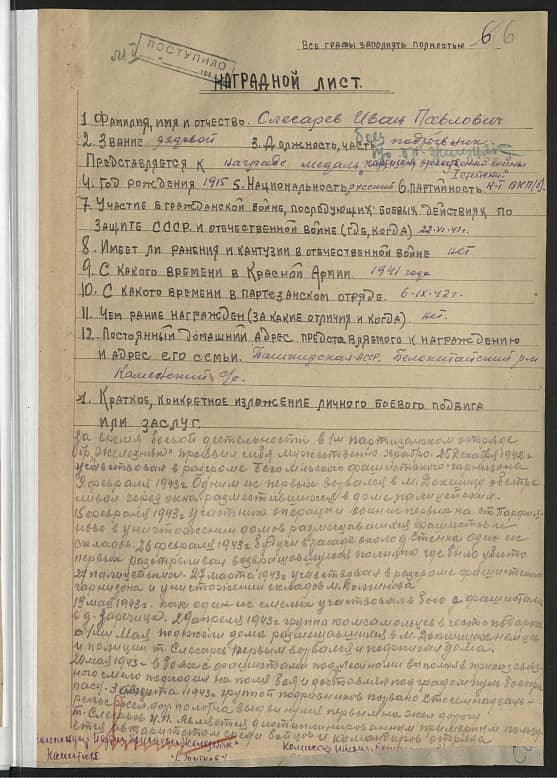 66
Все графы заполнять полностью
ПОСТУПИЛО
НАГРАДНОЙ ЛИСТ.
1. Фамилия, имя и отчество. Слесарев Иван Павлович
2. Звание рядовой 3. Должность, часть подрывник
Представляется к награде медаль "партизан отечественной войны
I степени"
4. Год рождения 1915 5. Национальность русский 6. Партийность к-т ВКП(б).
7. Участие в гражданской войне, последующих боевых действиях по
защите СССР и отечественной войне (где, когда) 22.VI.41г.
8. Имеет ли ранения и кантузии в отечественной войне нет
9. С какого времени в Красной Армии. 1941 года
10. С какого времени в партезанском отряде. 6.IX.42г.
11. Чем ранне награжден (за какие отличия и когда). нет.
12. Постоянный домашний адрес представляемого к награждению
и адрес его семьи. Башкирская АССР. Белокатайский р-н
с/с.
1. Краткое, конкретное изложение личного боевого подвига
или заслуг.
За время боевой деятельности в 1м партизанском отряде
"Железняк" проявил себя мужественно храбро. 25 декабря 1942г
участвовал в разгроме Бегомльского фашистского гарнизона
февраля 1943г одним из первых ворвался в м. Докшицы обстре
через окна разместившихся в доме полицейских.
15 февраля 1943г участник операции один из первых на ст. Парафи-
ново в уничтожении домов размещавшихся фашистов и
складов. 26 февраля 1943г в засаде около д. один из
первых расстреливал возвращавшуюся полицию где было убито
27 полицейских. 27 марта 1943г участвовал в разгроме фашистского
гарнизона и уничтожении складов м.
мая 1943г. как один из смелых участвовал в бою с фашистами
в д. 29 апреля 1943г группа комсомольцев в честь
1 Мая подожгли дома размещавшихся в м. Докшицы немцев
и полиции т. Слесарев первым ворвался и поджигал дома.
20 мая 1943г в бою с фашистами под выполнял приказ
под на поля боя и доставлял под градом пуль боепри
пасы. 3 августа 1943г группой подрывников
железнодор полотна выдвинулся первым на жел дорогу
т. Слесарев И.П. является дисциплинированным примерным
ется авторитетом среди бойцов и командиров отряда
Комиссар